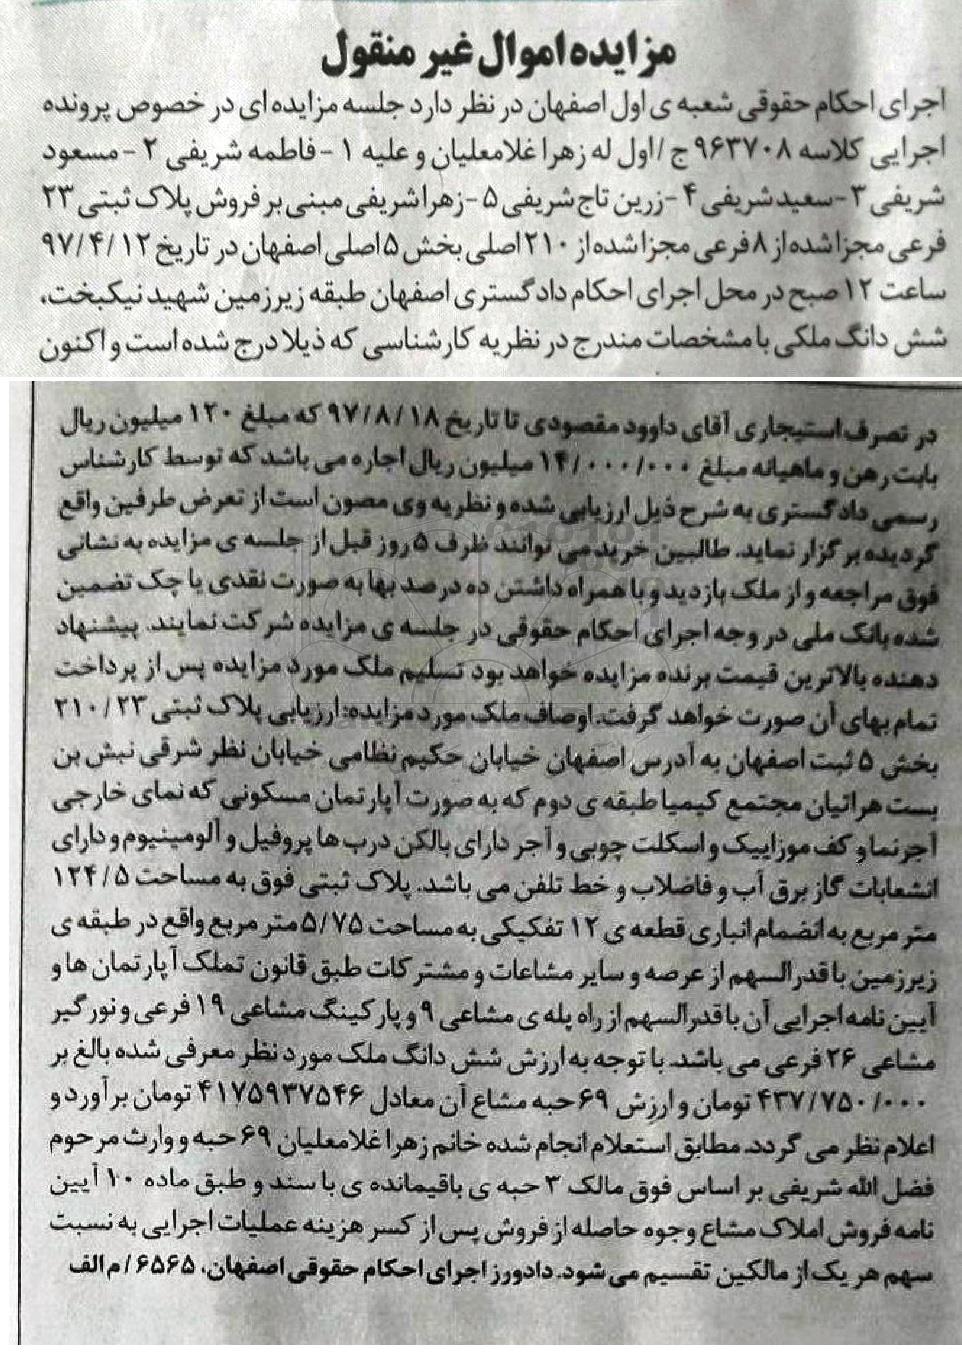 مزایده اموال غیر منقول
اجرای احکام حقوقی شعبه ی اول اصفهان در نظر دارد جلسه مزایده ای در خصوص پرونده
اجرایی کلاسه ۹۶۳۷۰۸ ج /اول له زهرا غلامعلیان و علیه ۱ -فاطمه شریفی ۲ -مسعود
شریفی ۳-سعید شریفی ۴ -زرین تاج شریفی ۵ -زهرا شریفی مبنی بر فروش پلاک ثبتی ۲۳
فرعی مجزا شده از ۸ فرعی مجزا شده از ۲۱۰ اصلی بخش ۵ اصلی اصفهان در تاریخ ۹۷/۴/۱۲
ساعت ۱۲ صبح در محل اجرای احکام دادگستری اصفهان طبقه زیرزمین شهید نیکبخت،
شش دانگ ملکی با مشخصات مندرج در نظریه کارشناسی که ذیلا درج شده است و اکنون
در تصرف استیجاری آقای داوود مقصودی تا تاریخ ۹۷/۸/۱۸ که مبلغ ۱۲۰ میلیون ریال
بابت رهن و ماهیانه مبلغ ۱۴/۰۰۰/۰۰۰ میلیون ریال اجاره می باشد که توسط کارشناس
رسمی دادگستری به شرح ذیل ارزیابی شده و نظریه وی مصون است از تعرض طرفین واقع
گردیده برگزار نماید. طالبین خرید می توانند ظرف ۵ روز قبل از جلسه ی مزایده به نشانی
فوق مراجعه و از ملک بازدید و با همراه داشتن ده درصد بها به صورت نقدی یا چک تضمین
شده بانک ملی در وجه اجرای احکام حقوقی در جلسه ی مزایده شرکت نمایند. پیشنهاد
دهنده بالاترین قیمت برنده مزایده خواهد بود تسلیم ملک مورد مزایده پس از پرداخت
تمام بهای آن صورت خواهد گرفت. اوصاف ملک مورد مزایده: ارزیابی پلاک ثبتی ۲۱۰/۲۳
بخش ۵ ثبت اصفهان به آدرس اصفهان خیابان حکیم نظامی خیابان نظر شرقی نبش بن
بست هراتیان مجتمع کیمیا طبقه ی دوم که به صورت آپارتمان مسکونی که نمای خارجی
آجرنما و کف موزاییک و اسکلت چوبی و آجر دارای بالکن درب ها پروفیل و آلومینیوم و دارای
انشعابات گاز برق آب و فاضلاب و خط تلفن می باشد. پلاک ثبتی فوق به مساحت ۱۲۴/۵
متر مربع به انضمام انباری قطعه ی ۱۲ تفکیکی به مساحت ۵/۷۵ متر مربع واقع در طبقه ی
زیرزمین با قدرالسهم از عرصه و سایر مشاعات و مشترکات طبق قانون تملک آپارتمان ها و
آیین نامه اجرایی آن با قدرالسهم از راه پله ی مشاعی ۹ و پارکینگ مشاعی ۱۹ فرعی و نورگیر
مشاعی ۲۶ فرعی می باشد. با توجه به ارزش شش دانگ ملک مورد نظر معرفی شده بالغ بر
۴۳۷/۷۵۰/۰۰۰ تومان و ارزش ۶۹ حبه مشاع آن معادل ۴۱۷۵۹۳۷۵۴۶ تومان برآورد و
اعلام نظر می گردد. مطابق استعلام انجام شده خانم زهرا غلامعلیان ۶۹ حبه و وارث مرحوم
فضل الله شریفی بر اساس فوق مالک ۳ حبه ی باقیمانده ی با سند و طبق ماده ۱۰ آیین
نامه فروش املاک مشاع وجوه حاصله از فروش پس از کسر هزینه عملیات اجرایی به نسبت
سهم هر یک از مالکین تقسیم می شود. دادورز اجرای احکام حقوقی اصفهان. ۶۵۶۵/م الف